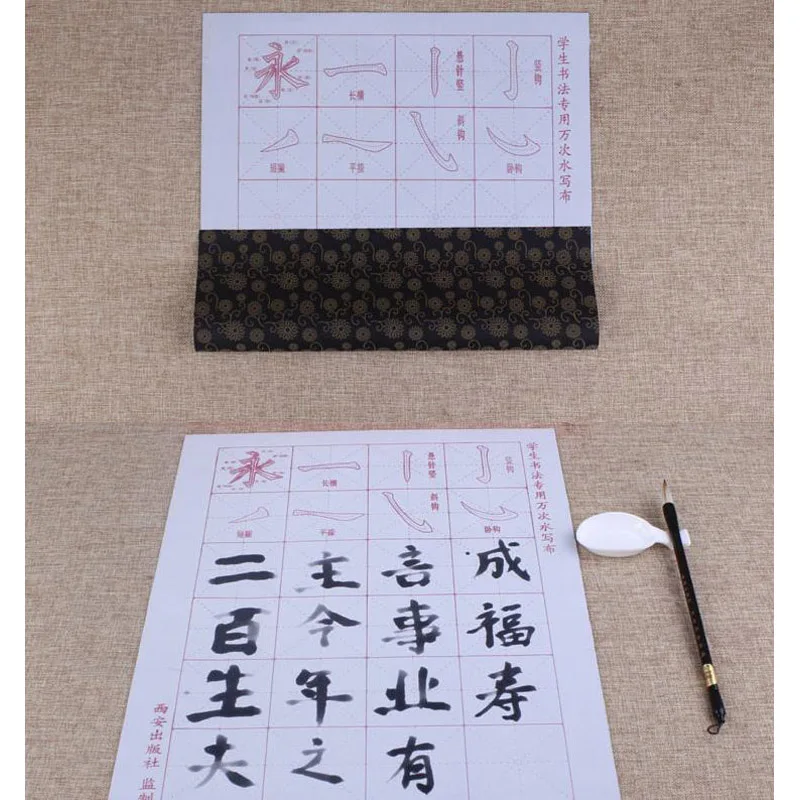 学生书法专用万次水写布
永
长横
悬针竖
竖钩
短撇
平捺
斜钩
卧钩
学生书法专用万次水写布
永
长横
悬针竖
竖钩
短撇
平捺
斜钩
卧钩
二主言成
百今事福
生年业寿
夫之有
西安出版社 监制